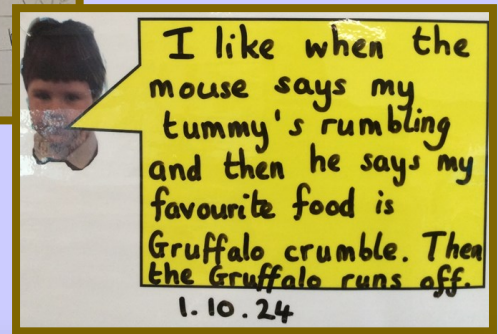 I like when the
mouse says my
tummy's rumbling
and then he says my
favourite food is
Gruffalo crumble. Then
the Gruffalo runs off.
1.10.24